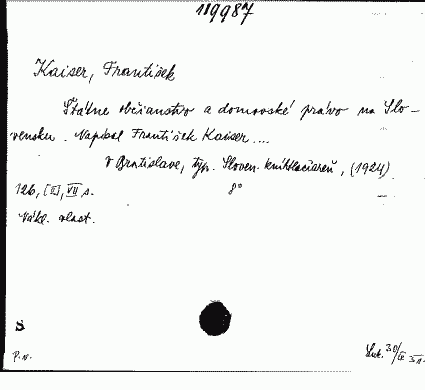 119987
Kaiser, František
Štátne občianstvo a domovské právo na Slo-
vensku. Napísal František Kaiser....
V Bratislave, typ. Sloven. kníhtlačiareň, (1924)
126, [II], VII s. 8°
Nákl. vlast.
S
P.N.